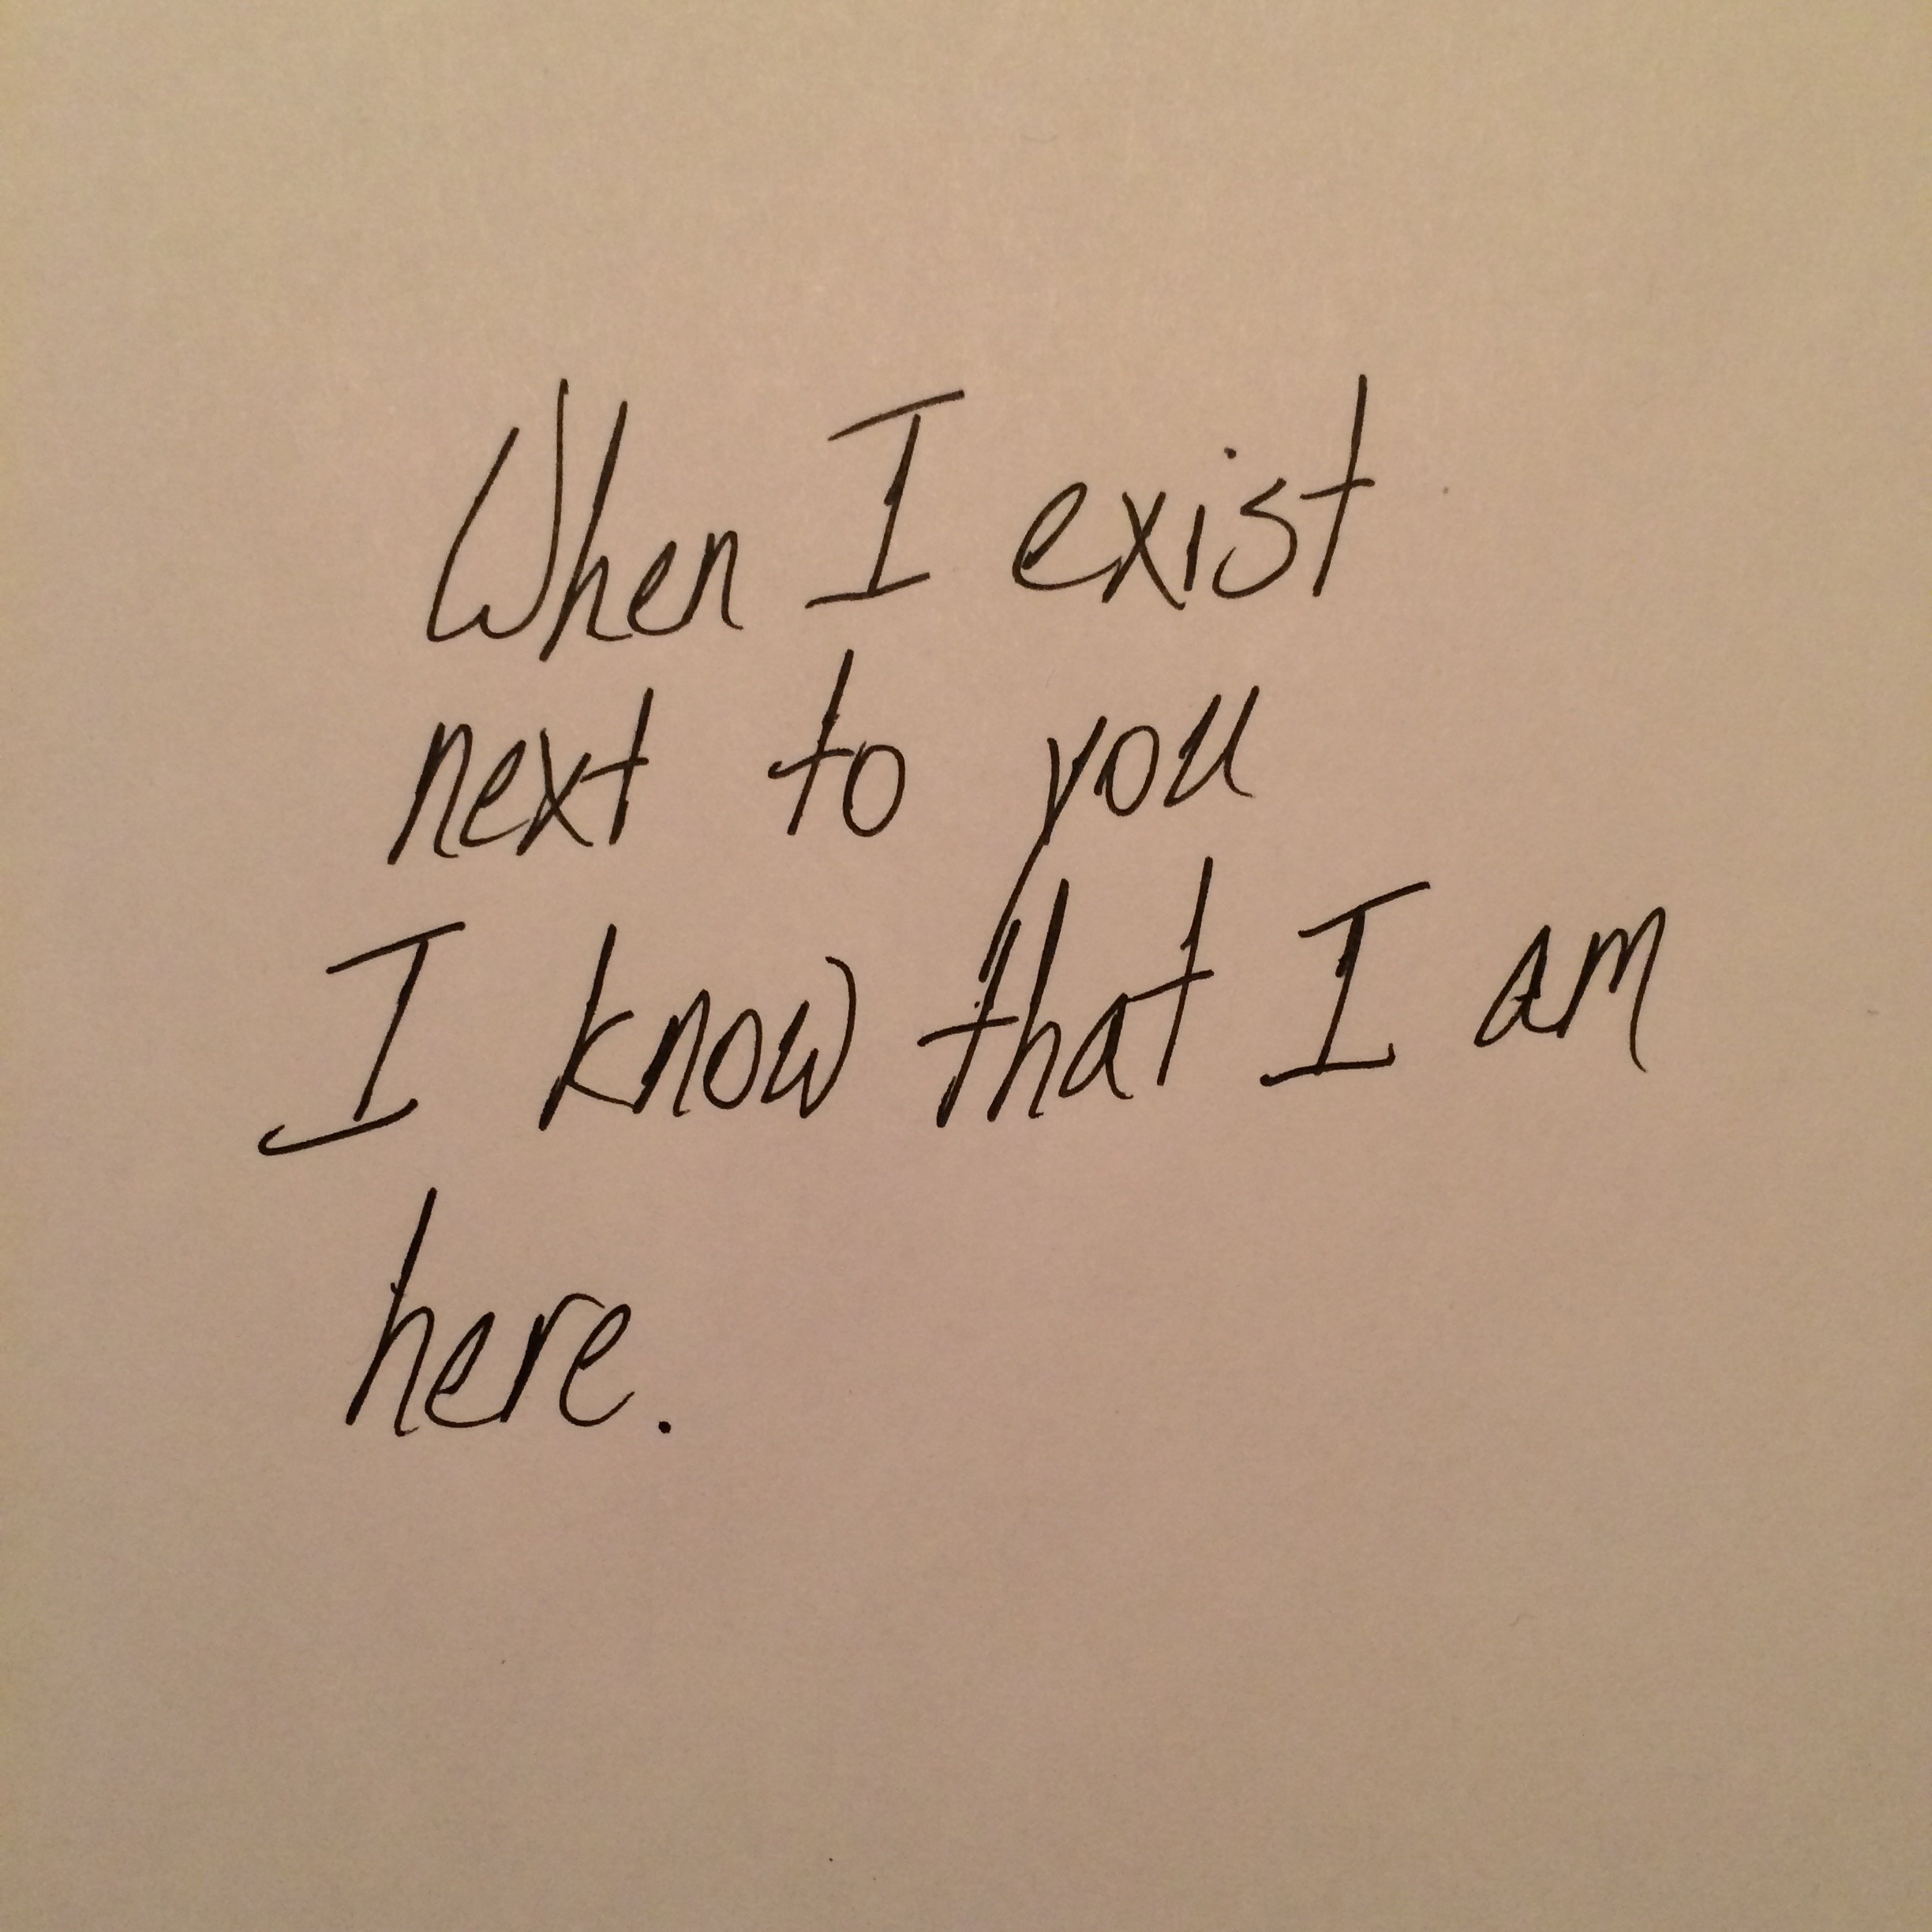 When I exist
next to you
I know that I am
here.